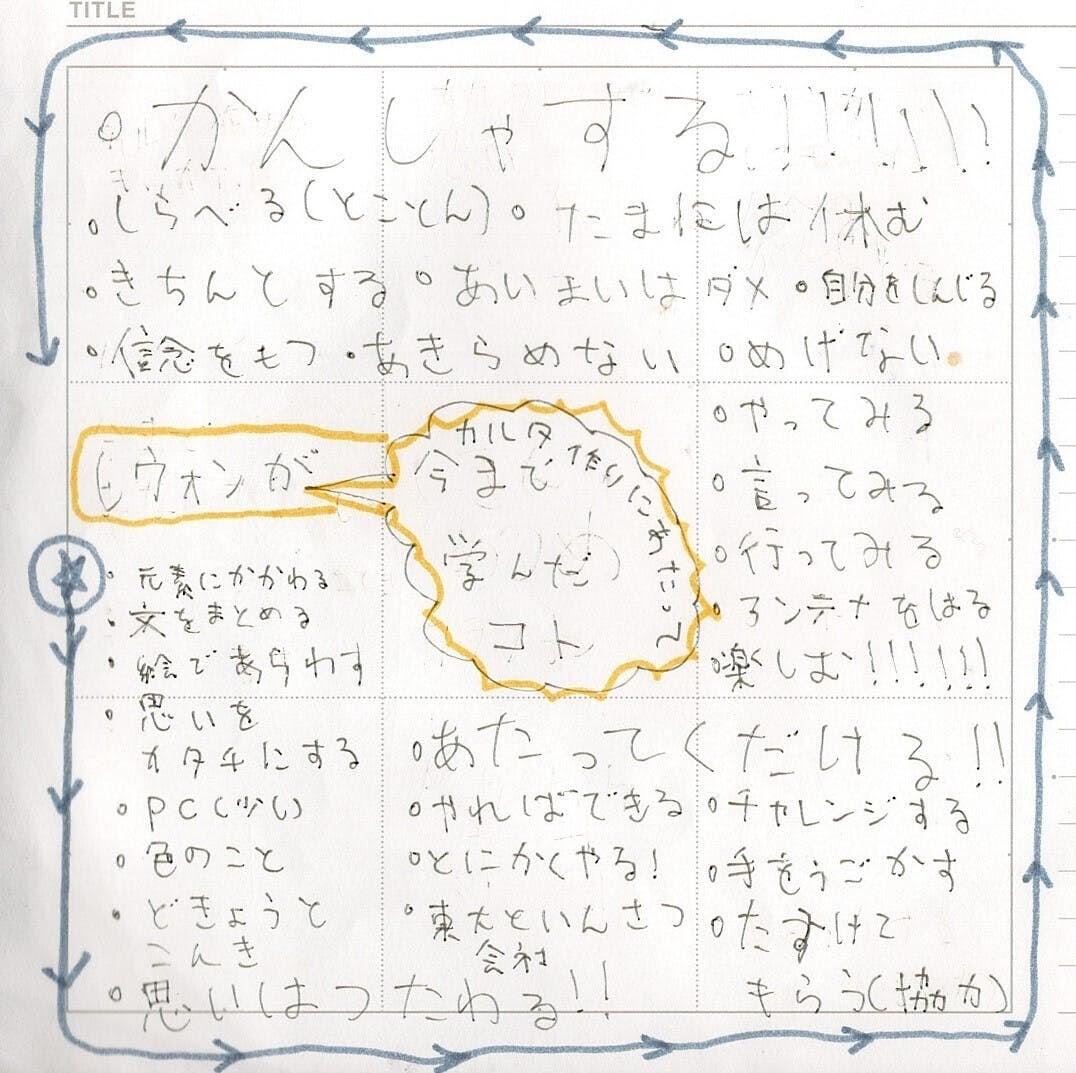 TITLE
• かんしゃする!!!!!!!
• しらべる(とことん) • たまには休む
• きちんとする • あいまいはダメ • 自分をしんじる
• 信念をもつ • あきらめない • めげない
ウォンが
カルタ作りにあたって
今まで
学んだ
コト
• やってみる
• 言ってみる
• 行ってみる
• アンテナをはる
• 楽しむ!!!!!!
• 元素にかかわる
• 文をまとめる
• 絵であらわす
• 思いを
カタチにする
• PC(少い)
• 色のこと
• どきょうと
こんき
• 思いはつたわる!!
• あたってくだける!!
• やればできる
• とにかくやる!
• 東大といんさつ
会社
• チャレンジする
• 手をうごかす
• たすけて
もらう(協力)